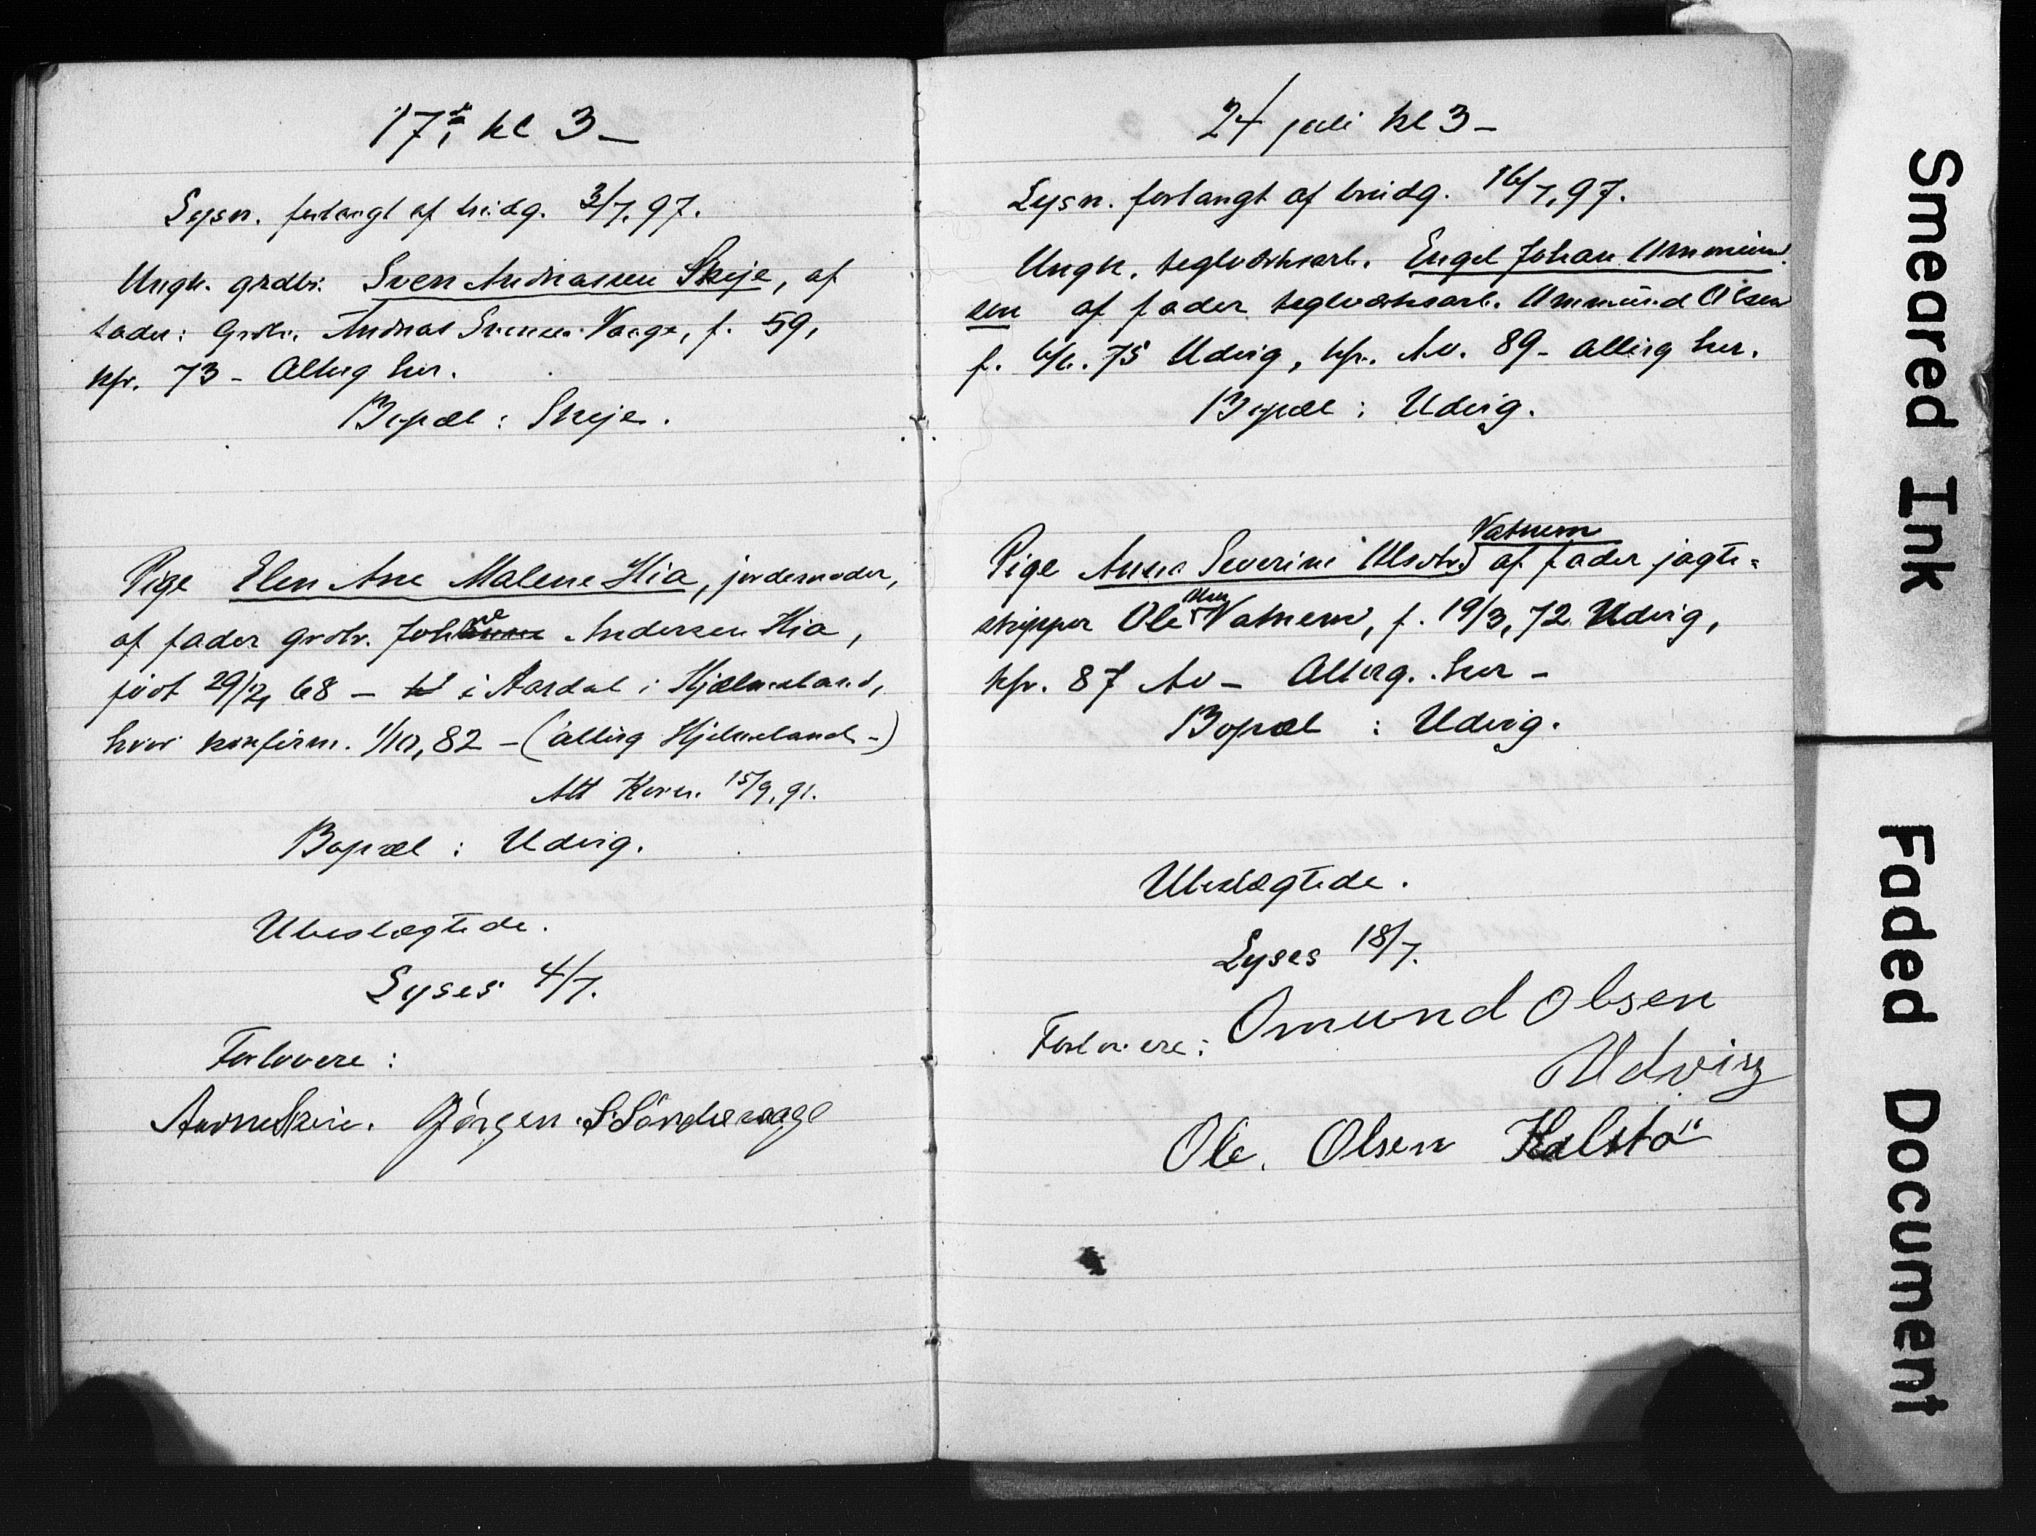 17de kl 3 –
Lysn. forlangt af brudg. 3/7, 97.
Ungk. grdbr. Sven Andreassen Skeje, af
fader: Grdbr. Andreas Svensen Vaage, f. 59,
kfr. 73 – Attterg her.
Bopæl : Skeje.
Pige Elen Ane Malene Hia, jordemoder,
af fader grdbr. Andersen Hia,
født 29/12, 68 – i Aardal i Hjælmeland,
hvor konfirm. 1/10, 82 – (atterg Hjelmeland –)
Att Kvern. 15/9, 91.
Bopæl : Udvig.
Ubeslægtede.
Lyses 4/7.
Forlovere :
Jørgen S Sördrevaage
24 juli kl 3 –
Lysn. forlangt af brudg. 16/7, 97.
Ungk. teglværksarb. Engel Johan Ommund
sen af fader teglværksarb. Ommund Olsen
f. 6/6. 75 Udvig, kfr. Av. 89 – atterg her.
Bopæl : Udvig.
Vatnem
Pige Anna Severine Olsdtr. af fader jagte=
skipper Ole Olsen Vatnem, f. 19/3, 72 Udvig,
kfr. 87 Av – Atterg. her –
Bopæl : Udvig.
Ubeslægtede.
Lyses 18/7.
Forlovere : Omund Olsen
Udvig
Ole. Olsen Kalstö
Smeared Ink
Faded Document